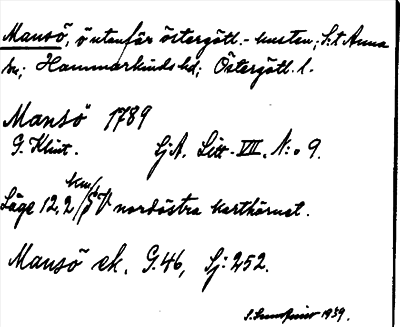 Mansö, ö utanför östergötl.-kusten; S:t Anna
sn; Hammarkinds hd; Östergötl. l.
Mansö 1789
G. Klint. SjA. Litt. VIII. N:o 9.
Läge 12,2 km/SV nordöstra karthörnet.
Mansö ek. G. 46, Sj: 252.
1939.